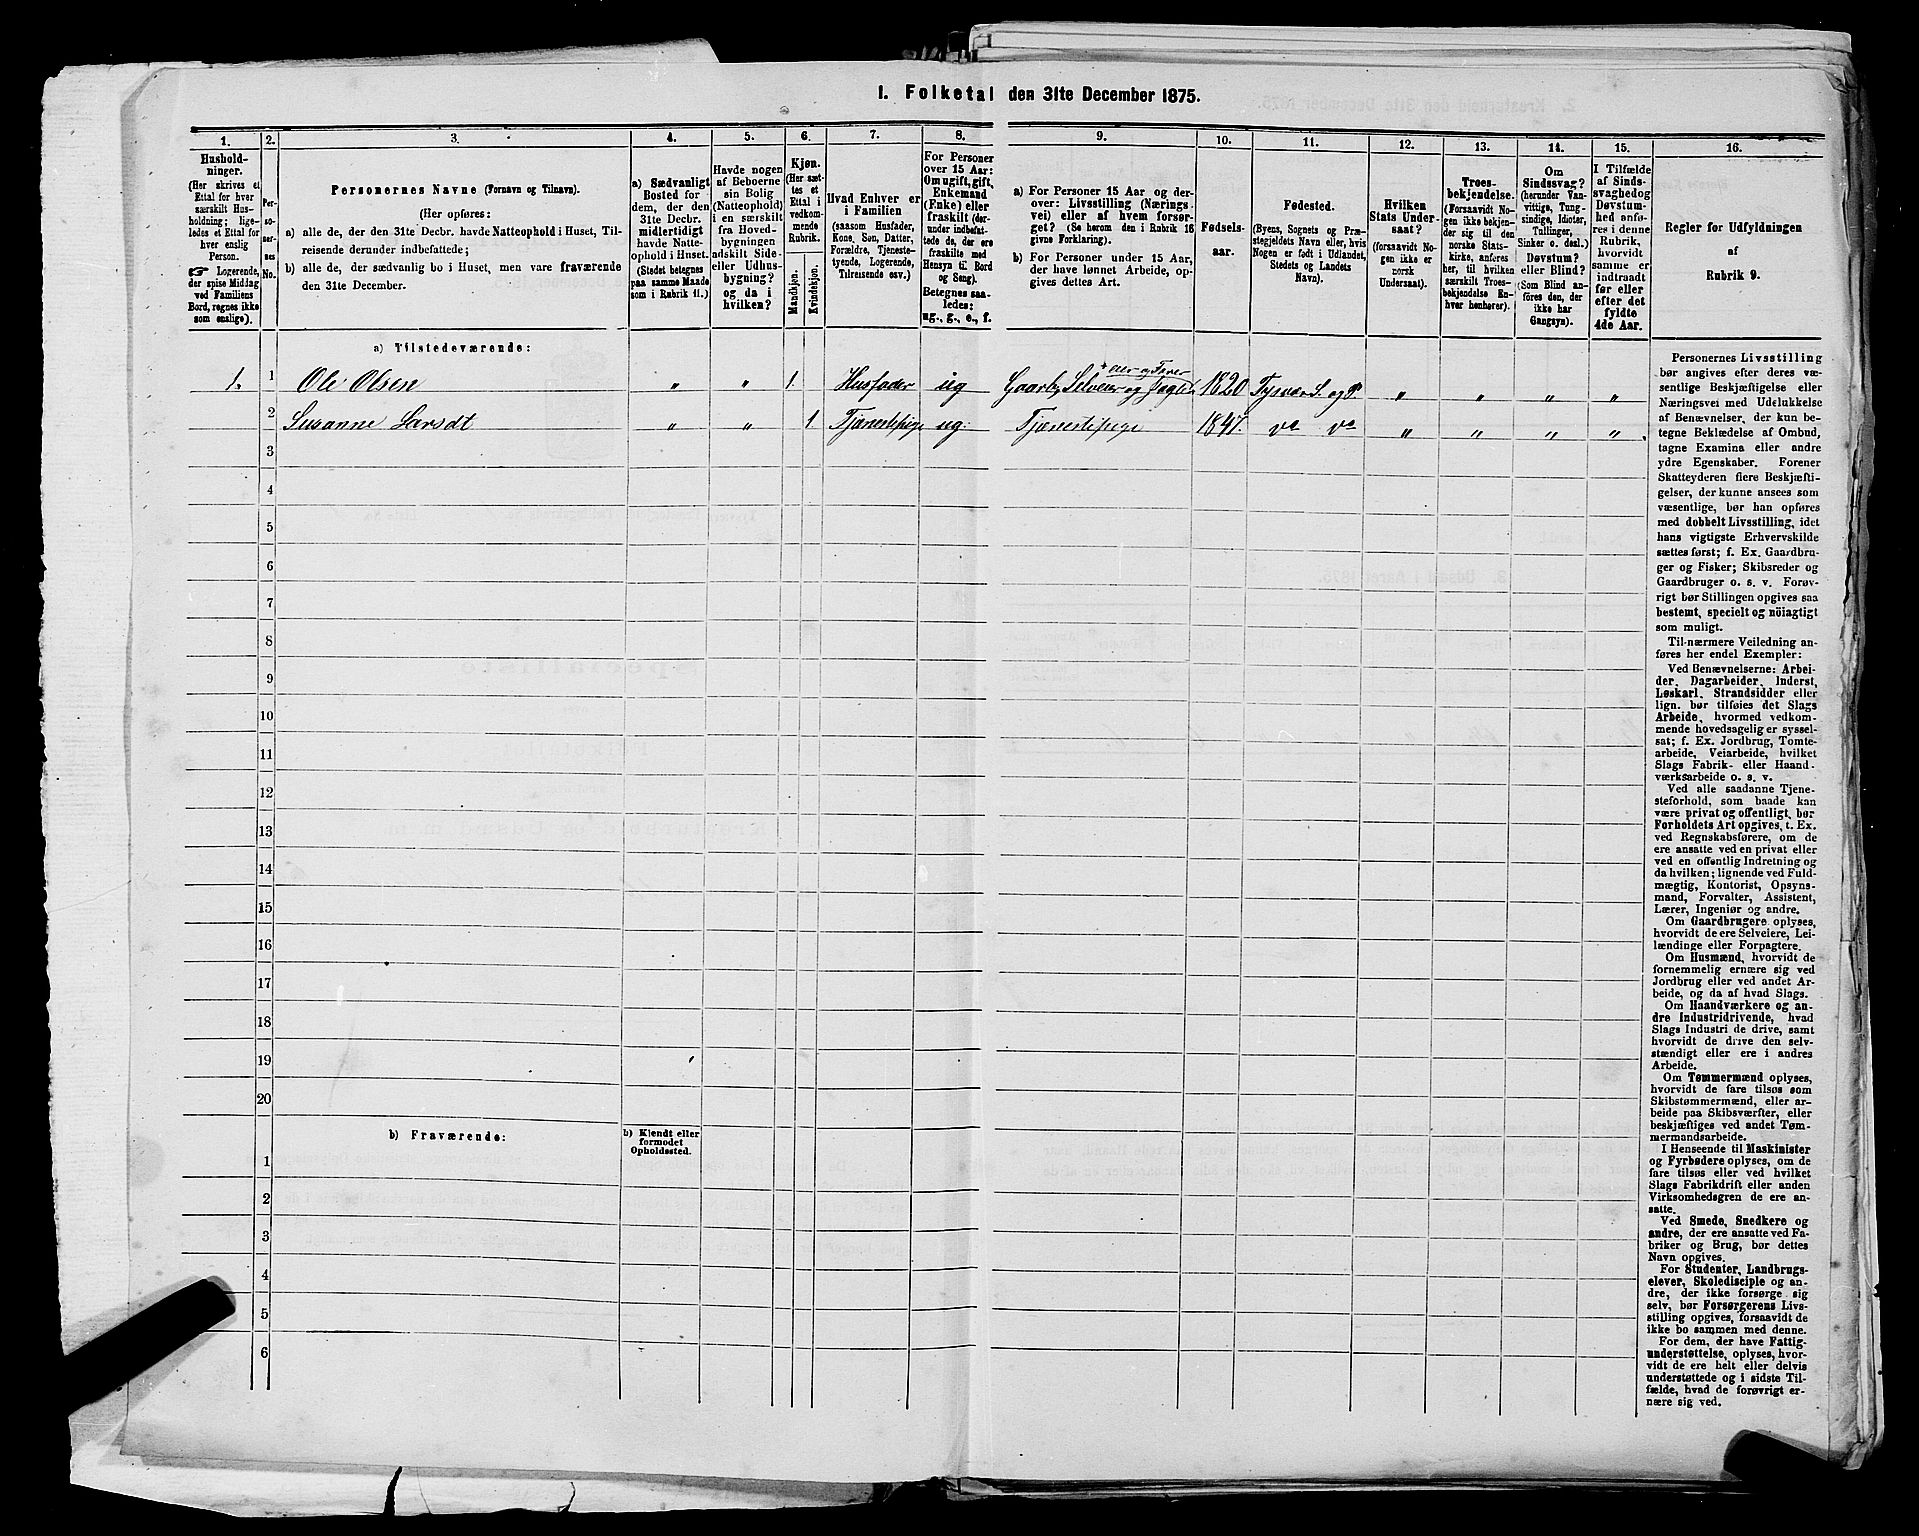 1. Folketal den 31te December 1875.
1. 2. 3. 4. 5. 6. 7. 8. 9. 10. 11. 12. 13. 14. 15. 16.
Hushold-
ninger.
(Her skrives et
Ettal for hver
særskilt Hus-
holdning; lige-
ledes et Ettal for
hver enslig
Person.
☞ Logerende,
der spise Middag
ved Familiens
Bord, regnes ikke
som enslige).
Per-
so-
ner-
nes
No.
Personernes Navne (Fornavn og Tilnavn).
(Her opføres:
a) alle de, der den 31te Decbr. havde Natteophold i Huset, Til-
reisende derunder indbefattede;
b) alle de, der sædvanlig bo i Huset, men vare fraværende
den 31te December.
a) Sædvanligt
Bosted for
dem, der den
31te Decbr.
midlertidigt
havde Natte-
ophold i Huset.
(Stedet betegnes
paa samme Maade
som i Rubrik 11.)
Havde nogen
af Beboerne
sin Bolig
(Natteophold)
i en særskilt
fra Hoved-
bygningen
adskilt Side-
eller Udhus-
bygning?
og da i
hvilken?
Kjøn.
(Her sæt-
tes et
Ettal i
vedkom-
mende
Rubrik.
Mandkjøn.
Kvindekjøn.
Hvad Enhver er
i Familien
(saasom Husfader,
Kone, Søn, Datter,
Forældre, Tjeneste-
tyende, Logerende,
Tilreisende osv.)
For Personer
over 15 Aar:
Om ugift, gift,
Enkemand
(Enke) eller
fraskilt (der-
under indbefat-
tede de, der ere
fraskilte med
Hensyn til Bord
og Seng).
Betegnes saa-
ledes:
ug., g., e., f.
a) For Personer 15 Aar og der-
over: Livsstilling (Nærings-
vei) eller af hvem forsør-
get? (Se herom den i Rubrik 16
givne Forklaring).
b) For Personer under 15 Aar,
der have lønnet Arbeide, op-
gives dettes Art.
Fødsels-
aar.
Fødested.
(Byens, Sognets og Præ-
stegjeldets Navn eller, hvis
Nogen er født i Udlandet,
Stedets og Landets
Navn).
Hvilken
Stats Under-
saat?
(forsaavidt No-
gen ikke er
norsk
Undersaat).
Troes-
bekjendelse.
(Forsaavidt No-
gen ikke bekjen-
der sig til den
norske Stats-
kirke, anføres
her, til hvilken
særskilt Troes-
bekjendelse En-
hver henhører).
Om
Sindssvag?
(herunder Van-
vittige, Tung-
sindige, Idioter,
Tullinger,
Sinker o. desl.)
Døvstum?
eller Blind?
(Som Blind an-
føres den, der
ikke har
Gangsyn).
I Tilfælde
af Sinds-
svaghed og
Døvstum-
hed anfø-
res i denne
Rubrik,
hvorvidt
samme er
indtraadt
før eller
efter det
fyldte
4de Aar.
Regler for Udfyldningen
af
Rubrik 9.
a) Tilstedeværende:
1. 1 Ole Olsen " " 1. Husfader ug Gaarbr. Selveier og 1820 Tysvær S. og P. " " " "
2 Susanne Larsdt " " 1 Tjenestepige ug. Tjenestepige 1847. do do " " " "
3
4
5
6
7
8
9
10
11
12
13
14
15
16
17
18
19
20
b) Fraværende: b) Kjendt eller
formodet
Opholdssted.
1
2
3
4
5
6
Personernes Livsstilling
bør angives efter deres væ-
sentlige Beskjæftigelse eller
Næringsvei med Udelukkelse
af Benævnelser, der kun be-
tegne Beklædelse af Ombud,
tagne Examina eller andre
ydre Egenskaber. Forener
Skatteyderen flere Beskjæfti-
gelser, der kunne ansees som
væsentlige, bør han opføres
med dobbelt Livsstilling, idet
hans vigtigste Erhvervskilde
sættes først; f. Ex. Gaardbru-
ger og Fisker; Skibsreder og
Gaardbruger o. s. v. Forøv-
rigt bør Stillingen opgives saa
bestemt, specielt og nöiagtigt
som muligt.
Til nærmere Veiledning an-
føres her endel Exempler:
Ved Benævnelserne: Arbei-
der, Dagarbeider, Inderst,
Løskarl, Strandsidder eller
lign. bør tilføies det Slags
Arbeide, hvormed vedkom-
mende hovedsagelig er syssel-
sat; f. Ex. Jordbrug, Tomte-
arbeide, Veiarbeide, hvilket
Slags Fabrik- eller Haand-
værksarbeide o. s. v.
Ved alle saadanne Tjene-
steforhold, som baade kan
være privat og offentligt, bør
Forholdets Art opgives, t. Ex.
ved Regnskabsførere, om de
ere ansatte ved en privat eller
ved en offentlig Indretning og
da hvilken; lignende ved Fuld-
mægtig, Kontorist, Opsyns-
mand, Forvalter, Assistent,
Lærer, Ingeniør og andre.
Om Gaardbrugere oplyses,
hvorvidt de ere Selveiere, Lei-
lændinge eller Forpagtere.
Om Husmænd, hvorvidt de
fornemmelig ernære sig ved
Jordbrug eller ved andet Ar-
beide, og da af hvad Slags.
Om Haandværkere og an-
dre Industridrivende, hvad
Slags Industri de drive, samt
hvorvidt de drive den selv-
stændigt eller ere i andres
Arbeide.
Om Tømmermænd oplyses,
hvorvidt de fare tilsøs som
Skibstømmermænd, eller ar-
beide paa Skibsværfter, eller
beskjæftiges ved andet Tøm-
mermandsarbeide.
I Henseende til Maskinister
og Fyrbødere oplyses, om de
fare tilsøs eller ved hvilket
Slags Fabrikdrift eller anden
Virksomhedsgren de ere an-
satte.
Ved Smede, Snedkere og
andre, der ere ansatte ved Fa-
briker og Brug, bør dettes
Navn opgives.
For Studenter, Landbrugs-
elever, Skoledisciple og an-
dre, der ikke forsørge sig
selv, bør Forsørgerens Livs-
stilling opgives, forsaavidt de
ikke bo sammen med denne.
For dem, der have Fattig-
understøttelse, oplyses, hvor-
vidt de ere helt eller delvis
understøttede og i sidste Til-
fælde, hvad de forøvrigt er-
nære sig ved.